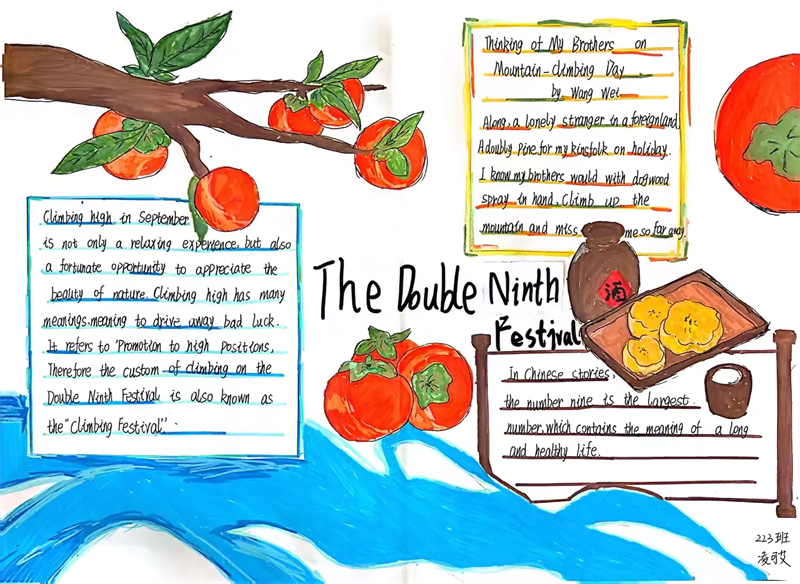 The Double Ninth
Festival
Thinking of My Brothers on
Mountain-climbing Day
by Wang Wei
Along, a lonely stranger in a foreign land,
A doubly pine for my kinsfolk on holiday.
I know my brothers would with dogwood
spray in hand, climb up the
mountain and miss me, so far away.
Climbing high in September
is not only a relaxing experience, but also
a fortunate opportunity to appreciate the
beauty of nature. Climbing high has many
meanings, meaning to drive away bad luck.
It refers to "Promotion to high positions,
Therefore the custom of climbing on the
Double Ninth Festival is also known as
the "Climbing Festival".
酒
In Chinese stories,
the number nine is the largest
number, which contains the meaning of a long
and healthy life.
223班
凌可艾